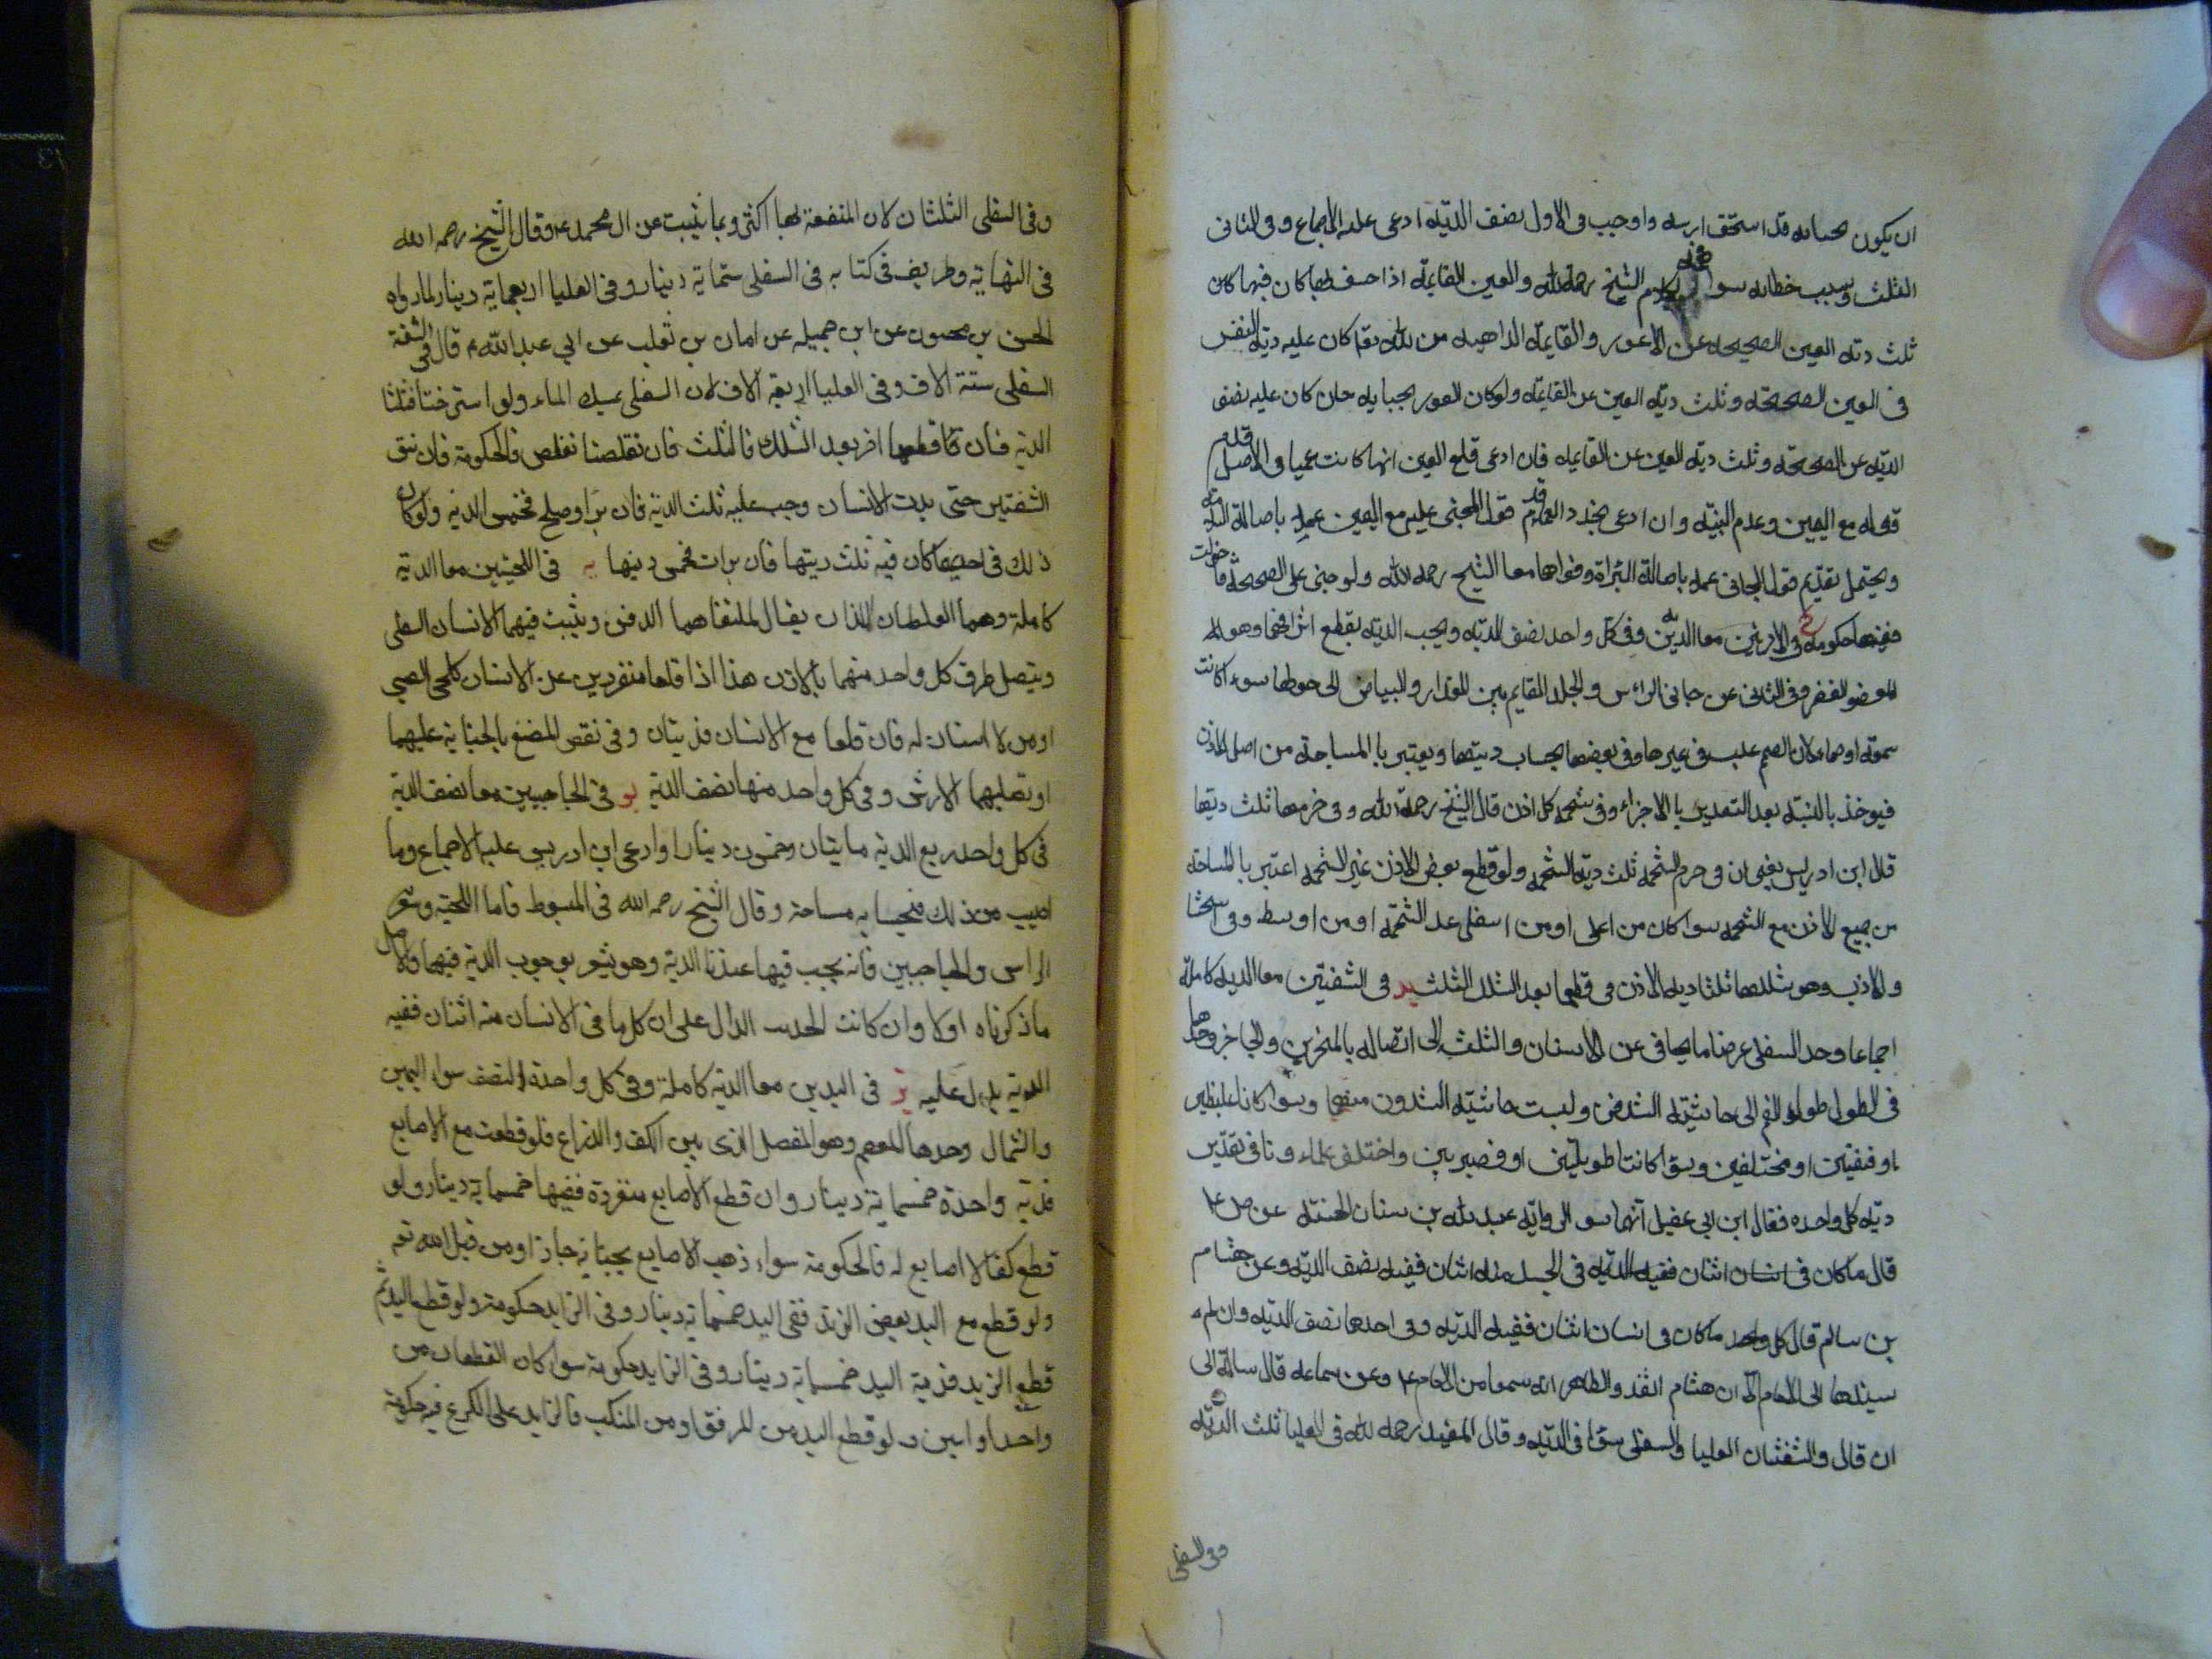 ان يكون بجنايه قد استحق ارسه واوجب فى الاول نصف الديه ادعى عليه الاجماع وفى الثانى
الثلث وسبب خطائه سوا كلام الشيخ رحمه الله والعين القايمه اذا خسف بها كان فيها كان
ثلث ديه العين الصحيحه عن الاعور والقايمه الذاهبه من الله تعه كان عليه ديه النفس
فى العين الصحيحه وثلث ديه العين عن القايمه ولو كان العور بجنايه جان كان عليه نصف
الديه عن الصحيحه وثلث ديه العين عن القايمه فان ادعى قلع العين انها كانت عميا فى الاصل قدم
قوله مع اليمين وعدم البينه وان ادعى تجدد العمى قدم قول المجنى عليه مع اليمين عملا باصالة السلامه
ويحتمل تقديم قول الجانى عملا باصالة البرائة وقواهما معا الشيخ رحمه الله ولو جنى على الصحيحه فاحولت
ففيها حكومه فى الاذنين معا الديه وفى كل واحد نصف الديه ويجب الديه بقطع اشرافهما وهو
العضو الغضروف الثانى عن جانبى الراس والجلد القايم بين العذار والبياض الى حولها سوء اكانت
سموعه او صماء لان الصم عيب فى غيرها وفى بعضها بحساب ديتها ويعتبر بالمساحه من اصل الاذن
فيوخذ بالنسبه بعد التقدير بالاجزاء وفى شحمه كل اذن قال الشيخ رحمه الله وفى خرمها ثلث ديتها
قال ابن ادريس يعنى ان فى خرم الشحمه ثلث ديه الشحمه ولو قطع بعض الاذن غير الشحمه اعتبر بالمساحه
من جميع الاذن مع الشحمه سوا كان من اعلى او من اسفل عند الشحمه او من اوسط وفى استحشا
الاذن وهو شللها ثلثا ديه الاذن فى قطعها بعد الشلل الثلث يد فى الشفتين معا الديه كاملة
اجماعا وحد السفلى عرضا ما يجافى عن الاسنان والثلث الى اتصاله بالمنخرين والحاجز وحدهما
فى الطول طول الفم الى حاشيته الشدقين وليست حاشيه الشدقين منهما وسوا كانا غليظين
او دقيقين او مختلفين وسوا كانتا طويلتين او قصيرتين واختلف علماءونا فى تقدير
ديه كل واحده فقال ابن ابى عقيل انهما سوا لروايه عبد الله بن سنان الحسنه عن ص ع
قال ما كان فى انسان اثنان ففيه الديه فى الجسد منه اثنان ففيه نصف الديه وعن هشام
بن سالم قال كل ما كان فى انسان اثنان ففيه الديه وفى احدهما نصف الديه وان لم
يسندها الى الامام الا ان هشام الثقه والظاهر انه سمعها من الامام ع وعن سماعه قال سالته الى
ان قال والشفتان العليا والسفلى سوا فى الديه وقال المفيد رحمه الله فى العليا ثلث الديه
وفى السفلى
وفى السفلى الثلثان لان المنفعة لها اكثر وبما يثبت عن ال محمد ع وقال الشيخ رحمه الله
فى النهاية وظريف فى كتابه فى السفلى ستماية دينار وفى العليا اربعماية دينار لما رواه
الحسن بن محبوب عن ابى جميله عن ابان بن تغلب عن ابى عبد الله ع قال فى الشفة
السفلى ستة الاف وفى العليا اربعة الاف لان السفلى يمسك الماء ولو استرختا فثلثا
الدية فان قطعهما اخر بعد الشلل فالثلث فان تقلصتا تقلص فالحكومة فان شق
الشفتين حتى بدت الاسنان وجب عليه ثلث الدية فان برا وصلح فخمس الدية ولو كان
ذلك فى احديهما كان فيه ثلث ديتها فان برات فخمس ديتها يه فى اللحيين معا الدية
كاملة وهما العظمان اللذان يقال لملتقاهما الذقن ويثبت فيهما الاسنان السفلى
ويتصل طرف كل واحد منهما بالاذن هذا اذا قلعا منفردين عن الاسنان كلحى الصبى
او من لا اسنان له فان قلعا مع الاسنان فديتان وفى نقص المضغ بالجناية عليهما
او تصلبهما الارش وفى كل واحد منها نصف الدية يو فى الحاجبين معا نصف الدية
فى كل واحد ربع الدية مايتان وخمسون دينارا وادعى ابن ادريس عليه الاجماع وما
اصيب من ذلك فبحسابه مساحة وقال الشيخ رحمه الله فى المبسوط فاما اللحية وشعر
الراس والحاجبين فانه يجب فيها عندنا الدية وهو يشعر بوجوب الدية فيهما والاصل
ما ذكرناه اولا وان كانت الحديث الدال على ان كل ما فى الانسان منه اثنان ففيه
الدية يدل عليه يز فى اليدين معا الدية كاملة وفى كل واحدة النصف سواء اليمين
والشمال وحدها المعصم وهو المفصل الذى بين الكف والذراع فلو قطعت مع الاصابع
فدية واحدة خمسماية دينار وان قطع الاصابع منفردة ففيها خمسماية دينار ولو
قطع كفا لا اصابع له فالحكومة سواء ذهب الاصابع بجناية جان او من قبل الله تعه
ولو قطع مع اليد بعض الزند ففى اليد خمسماية دينار وفى الزايد حكومة ولو قطع اليد ثم
قطع الزند فدية اليد خمسماية دينار وفى الزايد حكومة سوا كان القطعان من
واحد او اثنين ولو قطع اليد من المرفق او من المنكب فالزايد على الكوع فيه حكومة